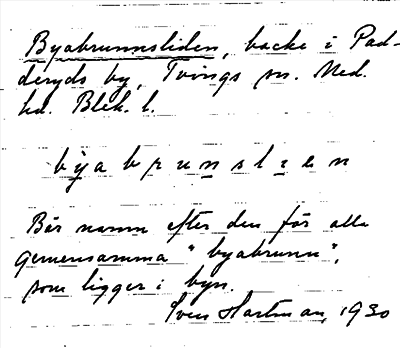 Byabrunnsliden, backe i Pad-
deryds by, Tvings sn. Med.
hd. Blek. l.
byabrunsl i en
Bär namn efter den för alla
gemensamma "byabrunn",
som ligger i byn.
Sven Hartman, 1930